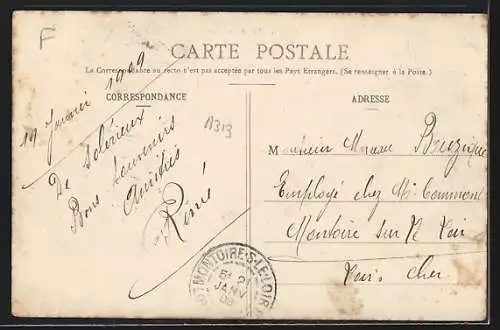 F
CARTE POSTALE
La Correspondance au recto n'est pas acceptée par tous les Pays Etrangers. (Se renseigner à la Poste.)
CORRESPONDANCE
19 Janvier 1909
De
Bons Souvenirs
Amitiés
René
A313
ADRESSE
Monsieur
Employé chez Mr
Montoire sur le Loir
Loir & Cher
MONTOIRE-S-LE-LOIR
21
JANV
09